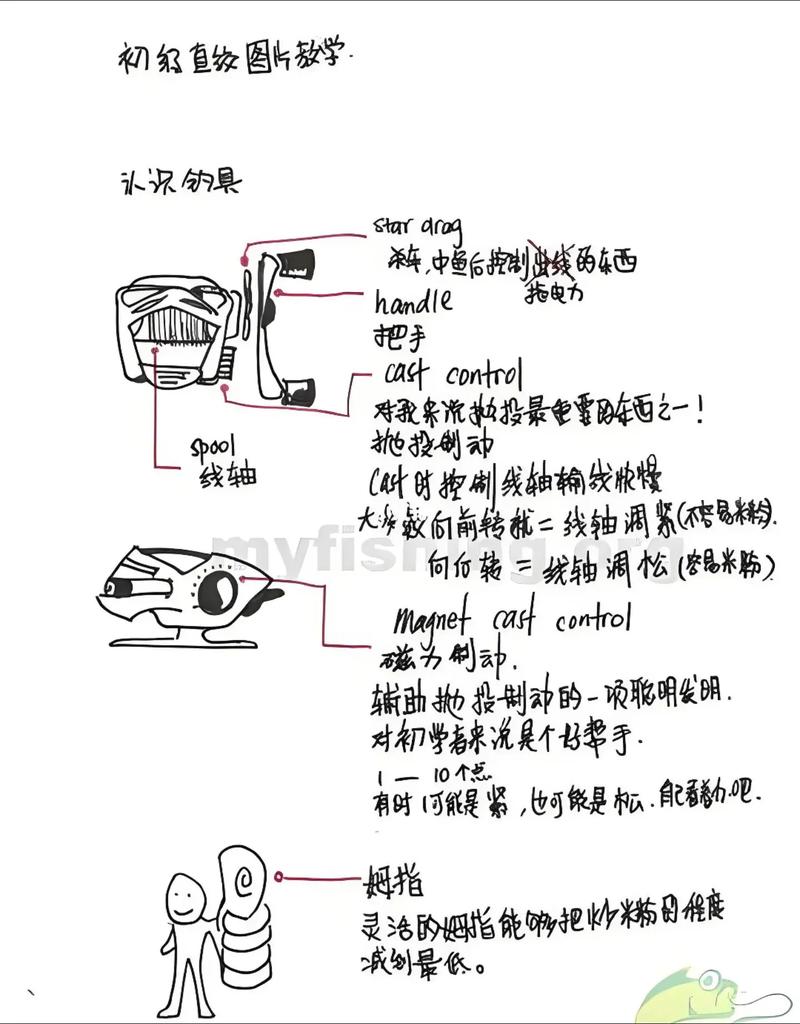 初级直绞图片教学.
认识钓具
star drag
杀车,中鱼后控制出线的东西
拖曳力
handle
把手
cast control
对我来说抛投最重要的东西之一!
抛投制动
cast时控制线轴输线快慢
大多数向前转就=线轴调紧(不容易米粉).
向后转=线轴调松(容易米粉)
spool
线轴
myfishing.org
magnet cast control
磁力制动.
辅助抛投制动的一项聪明发明.
对初学者来说是个好帮手.
1 — 10个点
有时1可能是紧,也可能是松.自己看着办吧.
姆指
灵活的姆指能够把炒米粉的程度
减到最低。